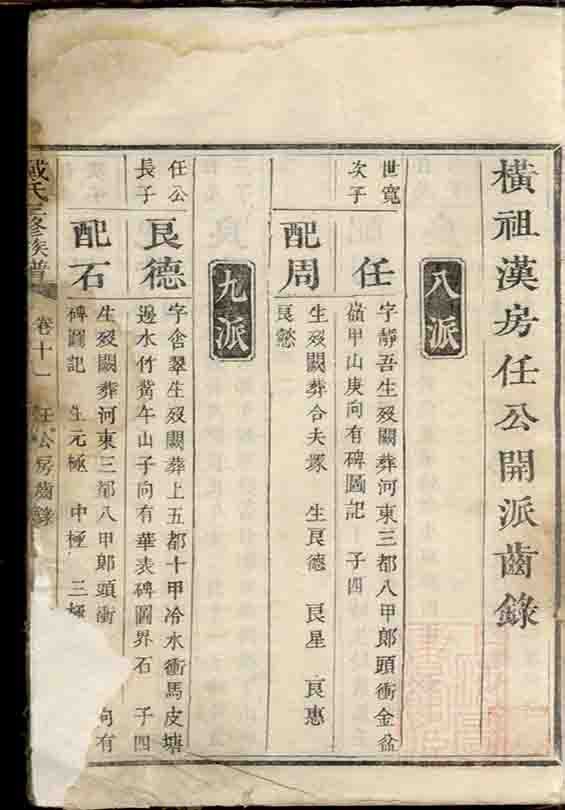 橫祖漢房任公開派齒錄
八派
世寬
次子
任
字靜吾生歿闕葬河東三都八甲郎頭衝金盆
嶺甲山庚向有碑圖記 子四
配周
生歿闕葬合夫塚 生良德 良星 良惠
良慾
九派
任公
長子
良德
字舍翠生歿闕葬上五都十甲冷水衝馬皮塘
邊水竹窩午山子向有華表碑圖界石 子四
配石
生歿闕葬河東三都八甲郎頭衝
向有
碑圖記 生元極 中極 三極
戴氏三修族譜 卷十一 任公房齒錄